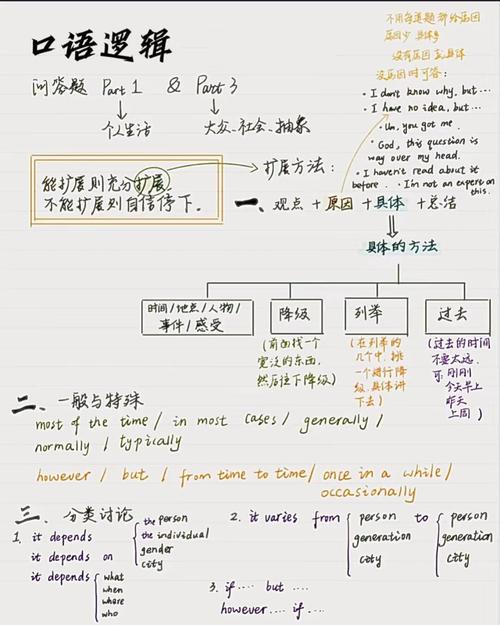 口语逻辑
不用每道题都给原因
原因少 具体多
没有原因 就具体
没原因时可答：
• I don't know why, but...
• I have no idea, but...
• Um, you got me.
• God, this question is way over my head.
• I haven't read about it before.
• I'm not an expert on this.
问答题 Part 1 & Part 3
个人生活
大众、社会、抽象
能扩展则充分扩展，
不能扩展则自信停下。
扩展方法：
一、观点 + 原因 + 具体 + 总结
具体的方法
时间/地点/人物/
事件/感受
降级
(前面找一个
宽泛的东西，
然后往下降级)
列举
(在列举的
几个中，挑
一个进行降
级，具体讲
下去)
过去
(过去的时间
不要太远，
可，刚刚
今天早上
昨天
上周)
二、一般与特殊
most of the time / in most cases / generally /
normally / typically
however / but / from time to time / once in a while /
occasionally
三、分类讨论
1. it depends
it depends on
the person
the individual
gender
city
it depends
what
when
where
who
2. it varies from
person
generation
city
to
person
generation
city
3. if.... but ....
however.... if ....